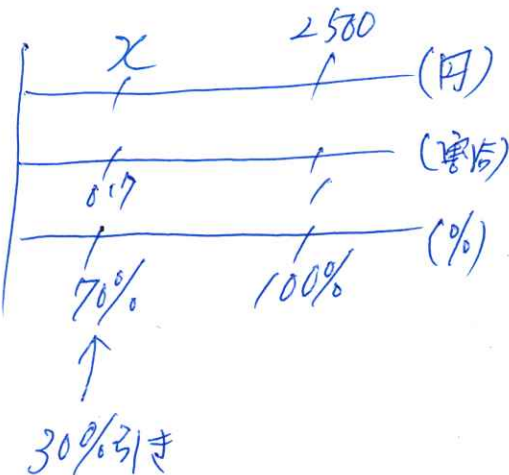 x 2500 (円)
0.7 1 (割合)
70% 100% (%)
↑
30%引き